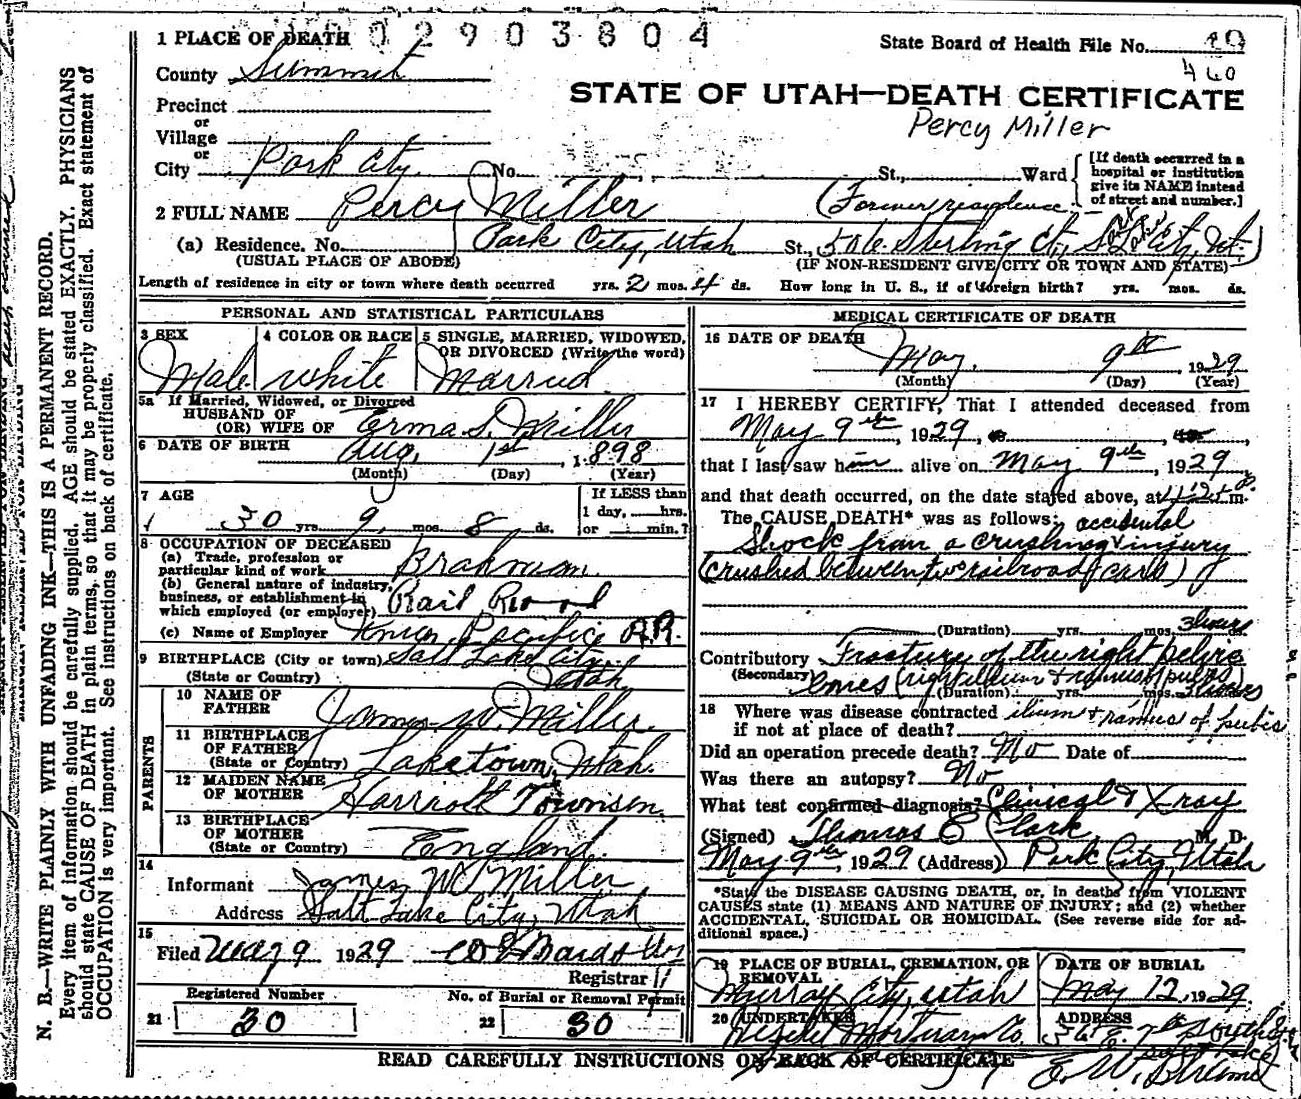 02903804
1 PLACE OF DEATH
State Board of Health File No. 49
460
County Summit
STATE OF UTAH—DEATH CERTIFICATE
Precinct
Percy Miller
or
Village
or
City Park City No. St., Ward
[If death occurred in a hospital or institution give its NAME instead of street and number.]
2 FULL NAME Percy Miller
(Former residence
(a) Residence. No. Park City, Utah St., 506 Sterling Ct., Salt Lake City, Ut.)
(USUAL PLACE OF ABODE) (IF NON-RESIDENT GIVE CITY OR TOWN AND STATE)
Length of residence in city or town where death occurred yrs. 2 mos. 4 ds. How long in U. S., if of foreign birth? yrs. mos. ds.
PERSONAL AND STATISTICAL PARTICULARS
3 SEX 4 COLOR OR RACE 5 SINGLE, MARRIED, WIDOWED, OR DIVORCED (Write the word)
Male white Married
5a If Married, Widowed, or Divorced
HUSBAND OF
(OR) WIFE OF Erma S. Miller
6 DATE OF BIRTH Aug. 1st 1898
(Month) (Day) (Year)
7 AGE
30 yrs. 9 mos. 8 ds.
If LESS than
1 day, hrs.
or min.?
8 OCCUPATION OF DECEASED
(a) Trade, profession or
particular kind of work Brakman
(b) General nature of industry,
business, or establishment in
which employed (or employer) Rail Road
(c) Name of Employer Union Pacific R.R.
9 BIRTHPLACE (City or town) Salt Lake City
(State or Country) Utah
PARENTS
10 NAME OF
FATHER James W. Miller
11 BIRTHPLACE
OF FATHER
(State or Country) Laketown, Utah.
12 MAIDEN NAME
OF MOTHER Harriott Townsen
13 BIRTHPLACE
OF MOTHER
(State or Country) England.
14
Informant James W. Miller
Address Salt Lake City, Utah
15
Filed May 9 1929
Registrar
Registered Number
21 30
No. of Burial or Removal Permit
22 30
MEDICAL CERTIFICATE OF DEATH
16 DATE OF DEATH May 9th, 1929
(Month) (Day) (Year)
17 I HEREBY CERTIFY, That I attended deceased from
May 9th, 1929, to
that I last saw him alive on May 9th, 1929
and that death occurred, on the date stated above, at m.
The CAUSE DEATH* was as follows: accidental
Shock from a crushing injury
(crushed between two railroad cars)
(Duration) yrs. mos. 3 hours ds.
Contributory Fracture of the right pelvic
(Secondary) bones (right ilium & ramus of pubis)
(Duration) yrs. mos. 3 hours
18 Where was disease contracted ilium & ramus of pubis
if not at place of death?
Did an operation precede death? No Date of
Was there an autopsy? No
What test confirmed diagnosis? Clinical & Xray
(Signed) Thomas E Clark, M. D.
May 9th, 1929 (Address) Park City, Utah
*State the DISEASE CAUSING DEATH, or, in deaths from VIOLENT
CAUSES state (1) MEANS AND NATURE OF INJURY; and (2) whether
ACCIDENTAL, SUICIDAL OR HOMICIDAL. (See reverse side for ad-
ditional space.)
19 PLACE OF BURIAL, CREMATION, OR REMOVAL
Murray City, Utah
DATE OF BURIAL
May 12, 1929
20 UNDERTAKER
Mortuary Co.
ADDRESS
READ CAREFULLY INSTRUCTIONS ON BACK OF CERTIFICATE
N. B.—WRITE PLAINLY WITH UNFADING INK—THIS IS A PERMANENT RECORD.
Every item of information should be carefully supplied. AGE should be stated EXACTLY. PHYSICIANS
should state CAUSE OF DEATH in plain terms, so that it may be properly classified. Exact statement of
OCCUPATION is very important. See instructions on back of certificate.